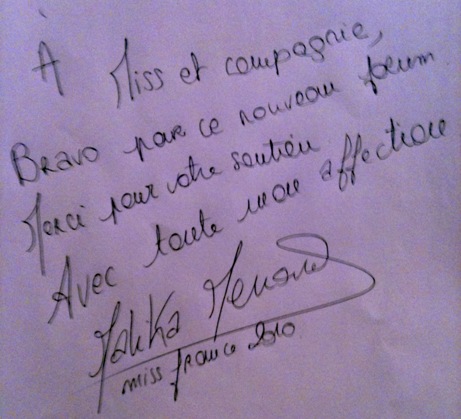 À Miss et compagnie,
Bravo pour ce nouveau forum
Merci pour votre soutien
Avec toute mon affection
Malika Menard
miss france 2010